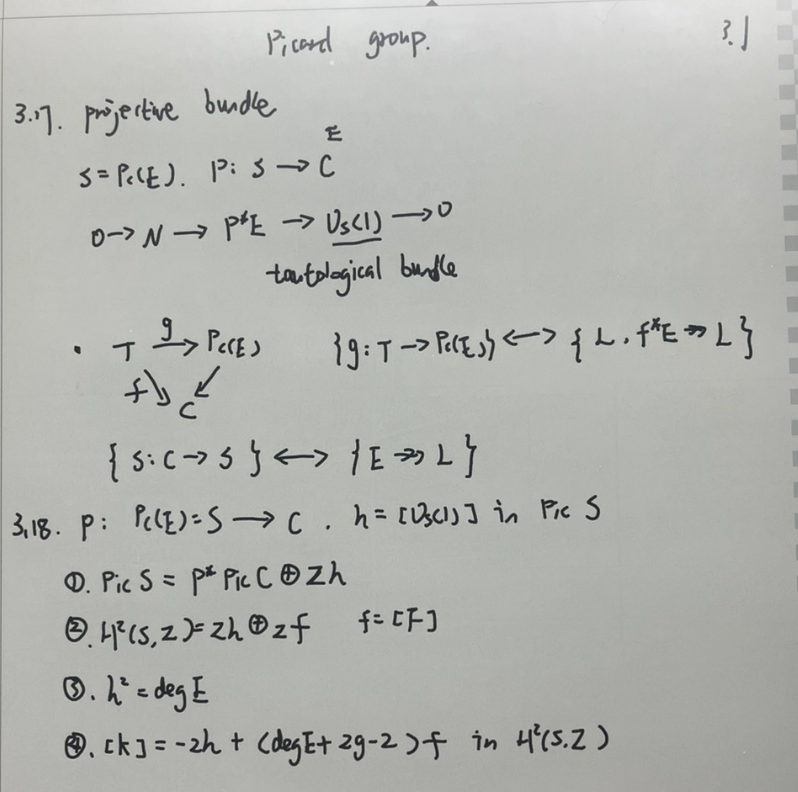 Picard group. 3.1
3.17. projective bundle
E
S = Pc(E). P: S → C
0 → N → P*E → Us(1) → 0
tautological bundle
· T →g Pc(E) {g: T → Pc(E)} ↔ {L, f*E ↠ L}
f ↘ ↙
C
{s: C → S} ↔ {E ↠ L}
3.18. P: Pc(E) = S → C. h = [Us(1)] in Pic S
①. Pic S = P* Pic C ⊕ Zh
②. H²(S,Z) = Zh ⊕ Zf f = [F]
③. h² = deg E
④. [k] = -2h + (deg E + 2g - 2)f in H²(S.Z)